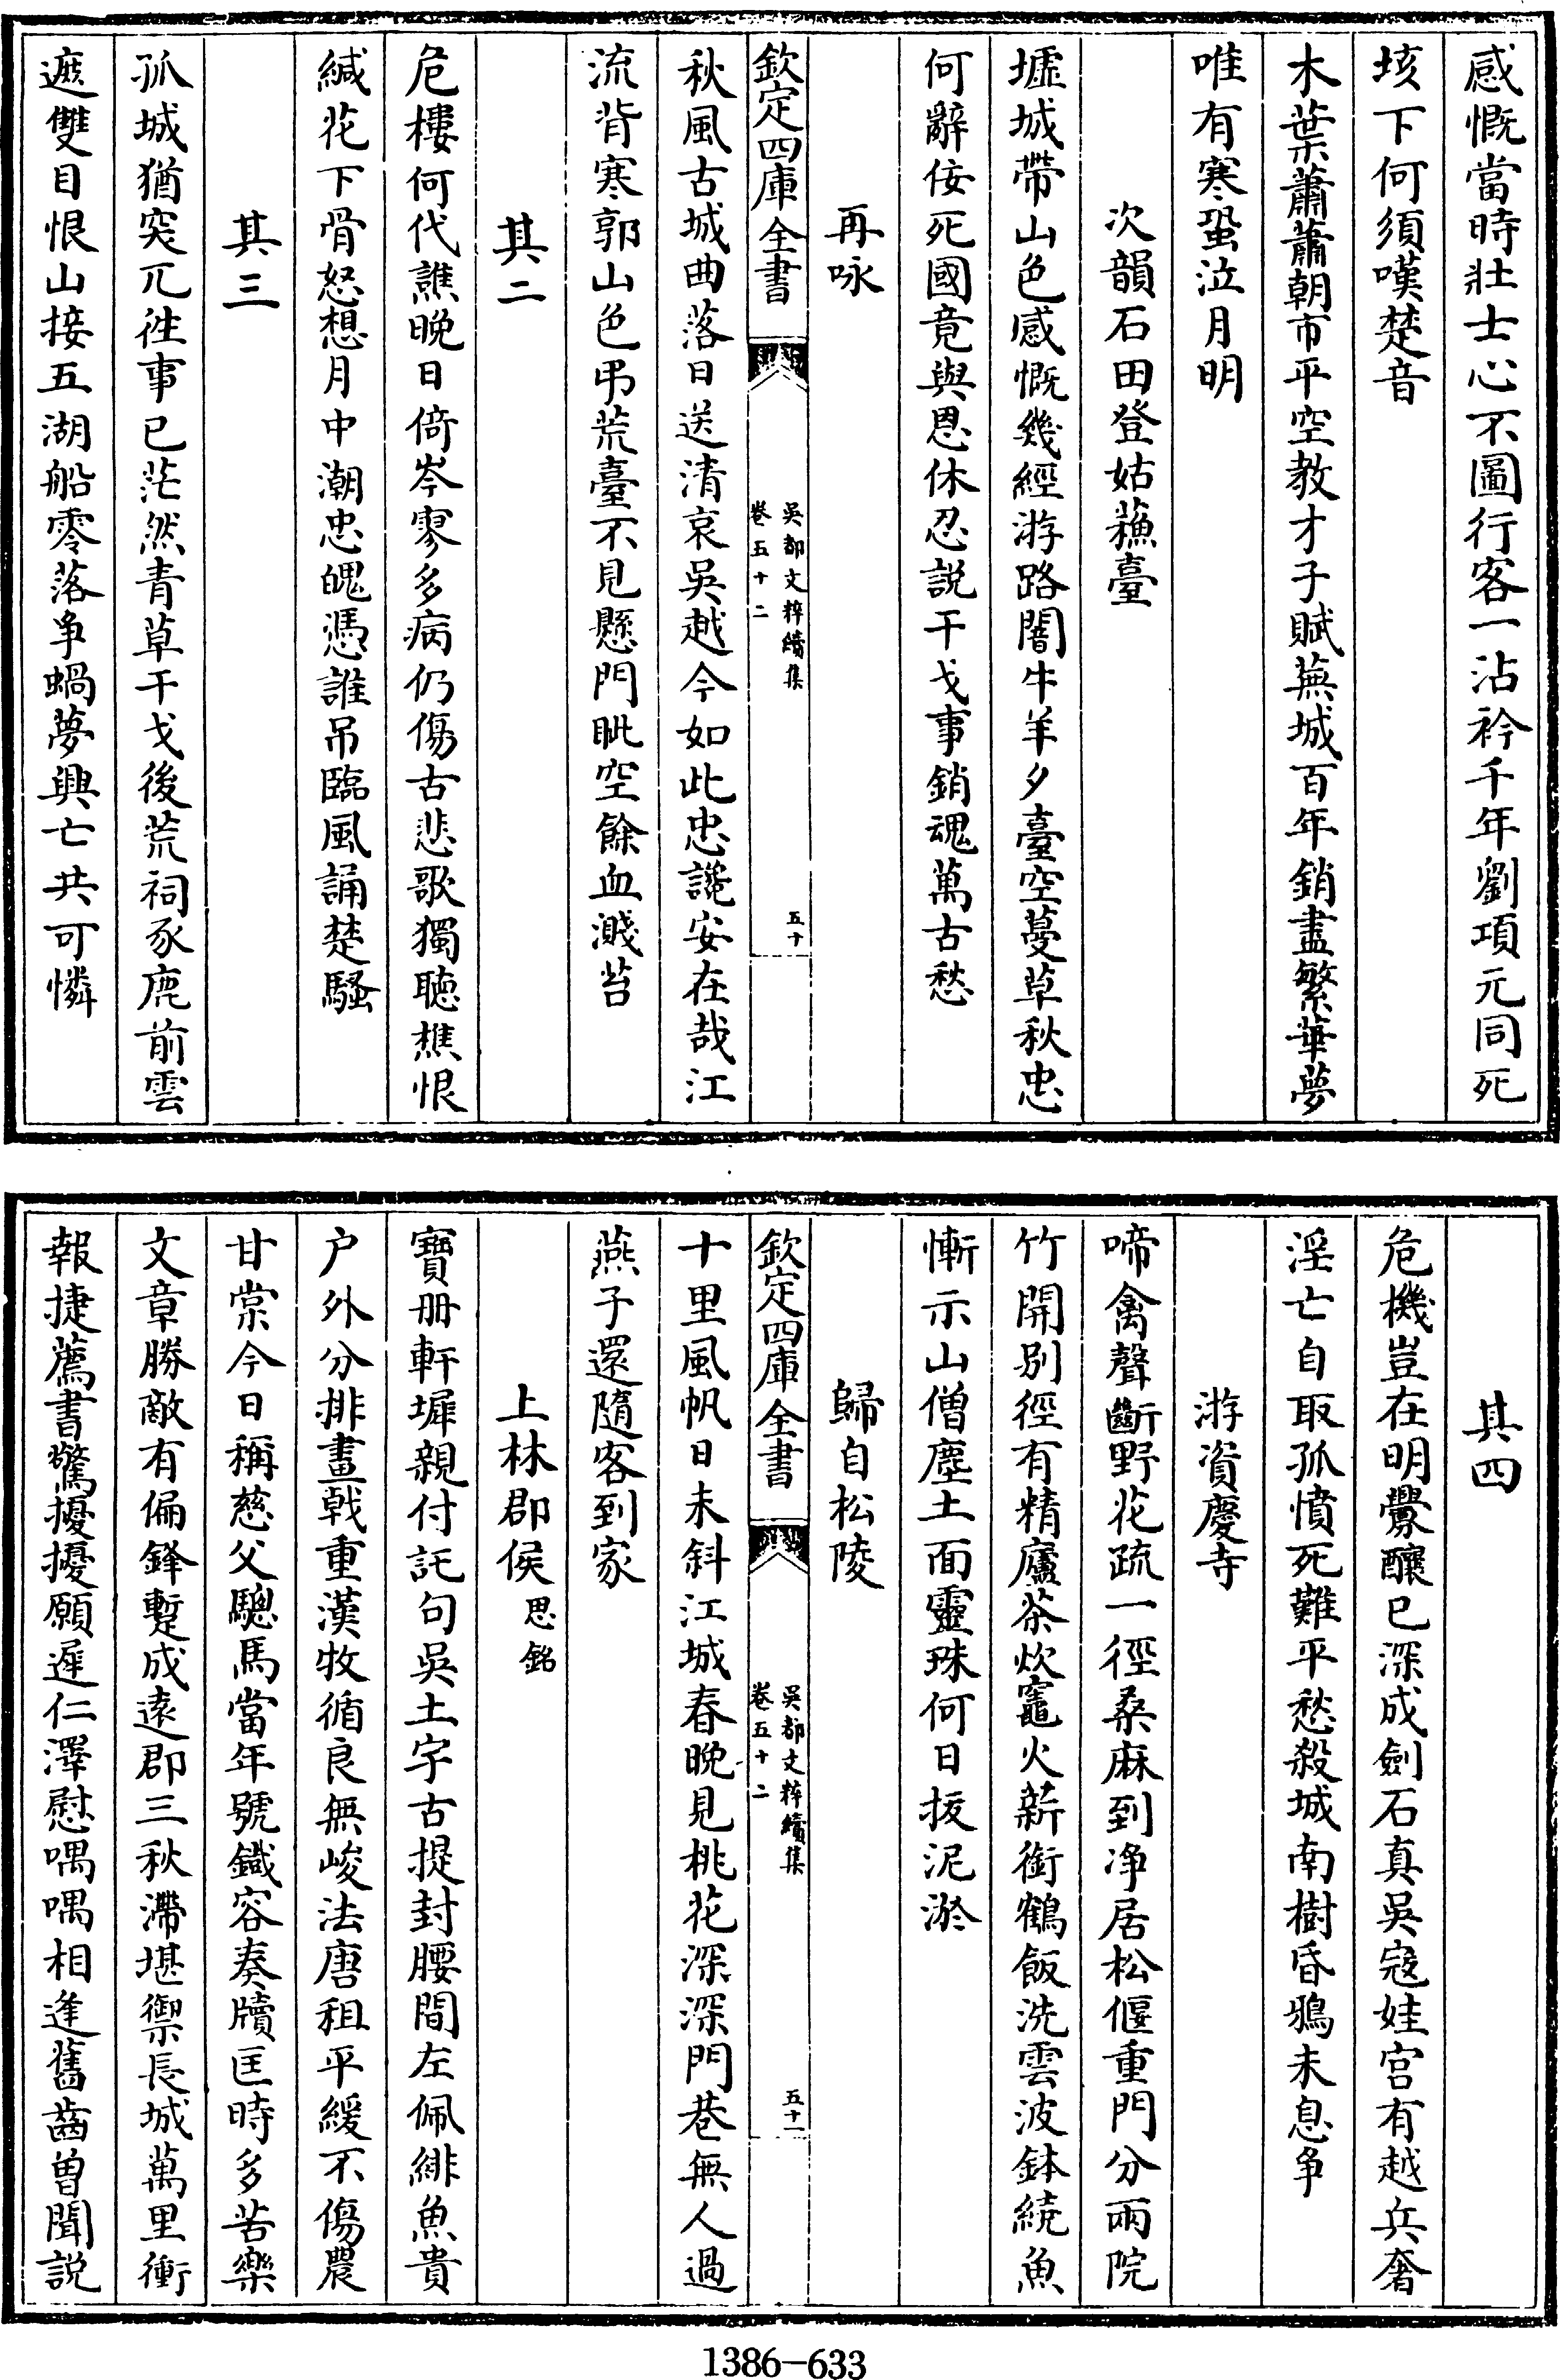 感慨當時壯士心不圖行客一沾衿千年劉項元同死
垓下何須嘆楚音
木葉蕭蕭朝市平空教才子賦蕪城百年銷盡繁華夢
唯有寒蛩泣月明
次韻石田登姑蘓臺
墟城帶山色感慨幾經游路闇牛羊夕臺空蔓草秋忠
何辭侫死國竟與恩休忍説干戈事銷魂萬古愁
再咏
欽定四庫全書
吳都文粹續集
卷五十二
五十
秋風古城曲落日送清哀吳越今如此忠讒安在哉江
流背寒郭山色弔荒臺不見懸門眦空餘血濺苔
其二
危樓何代譙晚日倚岑寥多病仍傷古悲歌獨聴樵恨
緘花下骨怒想月中潮忠魄慿誰吊臨風誦楚騷
其三
孤城猶突兀徃事已茫然青草干戈後荒祠豕鹿前雲
遮雙目恨山接五湖船零落爭蝸夢興亡共可憐
其四
危機豈在明釁釀已深成劍石真吳寇娃宫有越兵奢
淫亡自取孤憤死難平愁殺城南樹昏鴉未息爭
游資慶寺
啼禽聲斷野花疏一徑桑麻到净居松偃重門分兩院
竹開别徑有精廬茶炊竈火新銜鶴飯洗雲波鉢繞魚
慚示山僧塵土面靈珠何日拔泥淤
歸自松陵
欽定四庫全書
吳都文粹續集
卷五十二
五十一
十里風帆日未斜江城春晚見桃花深深門巷無人過
燕子還隨客到家
上林郡侯思銘
寶册軒墀親付託句吳土宇古提封腰間左佩緋魚貴
户外分排畫戟重漢牧循良無峻法唐租平緩不傷農
甘棠今日稱慈父驄馬當年號鐵容奏牘匡時多苦樂
文章勝敵有偏鋒蹔成遠郡三秋滯堪禦長城萬里衝
報捷薦書驚擾擾願遲仁澤慰喁喁相逢舊齒曽聞説
1386-633